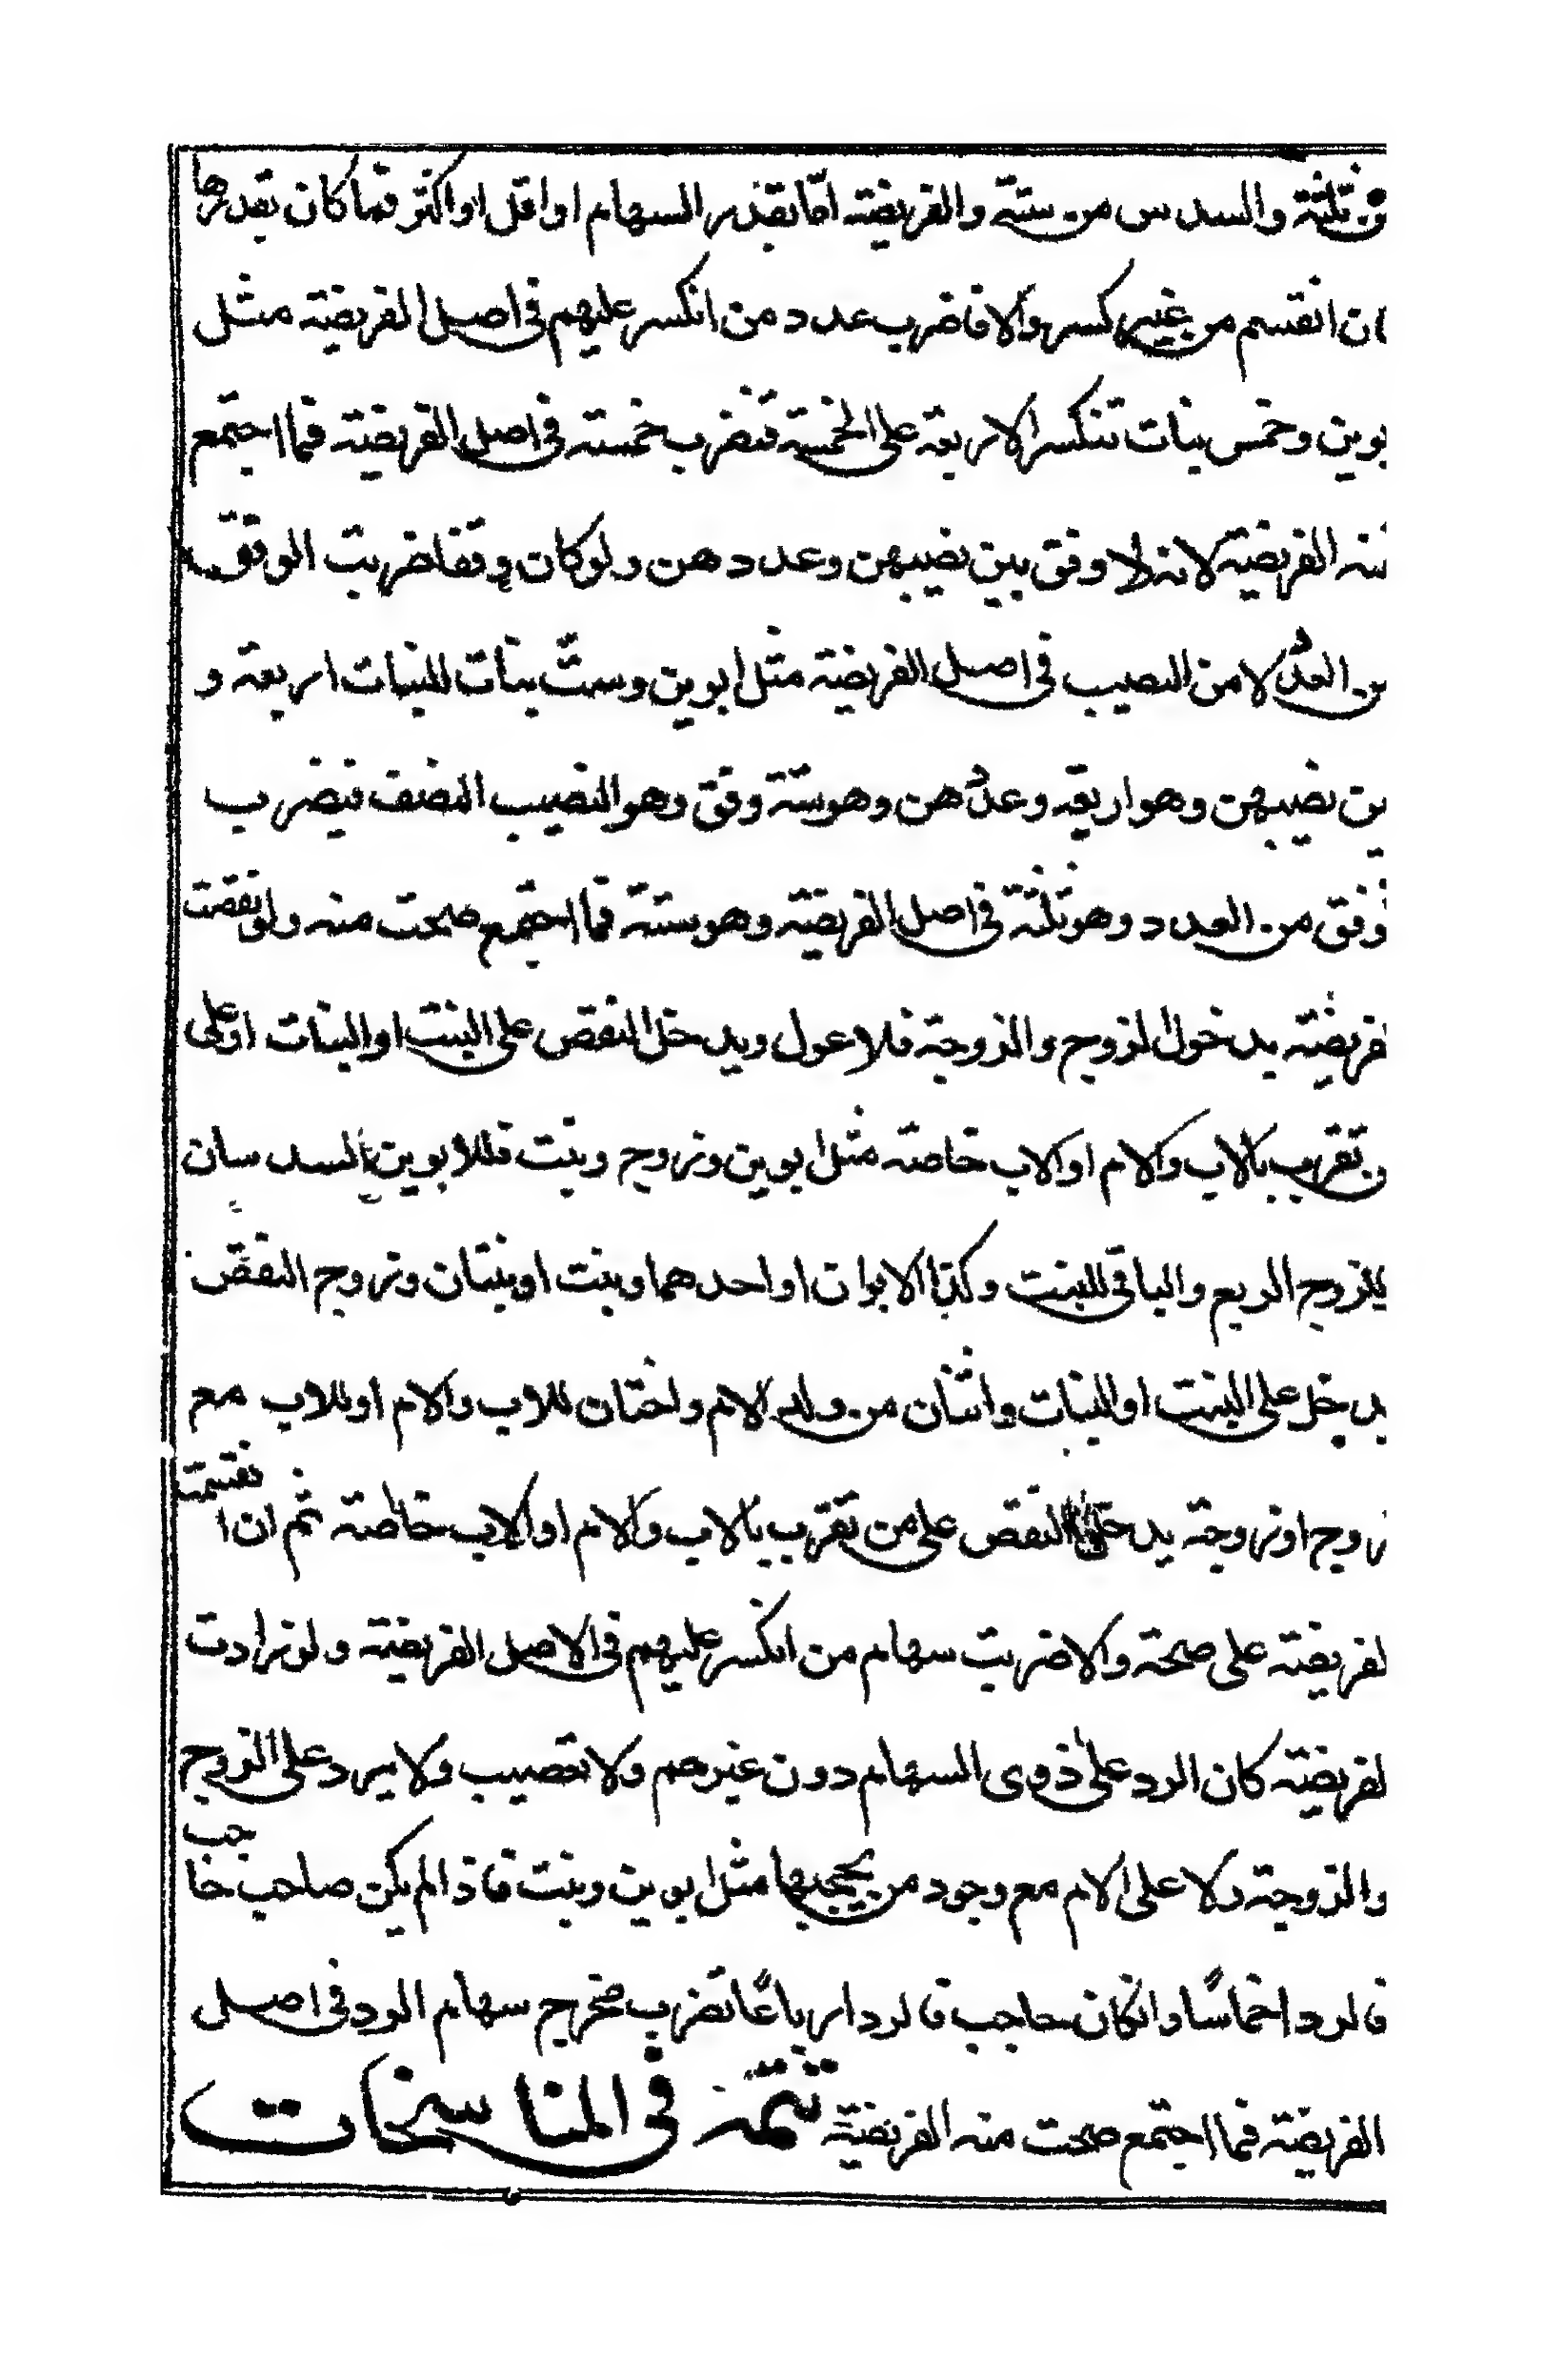 من ثلثة والسدس من ستة والفريضة اما بقدر السهام او اقل او اكثر فما كان بقدرها
ان انقسم من غير كسر والا فاضرب عدد من انكسر عليهم فى اصل الفريضة مثل
بوين وخمس بنات تنكسر الاربعة على الخمسة فتضرب خمسة فى اصل الفريضة فما اجتمع
منه الفريضة لانه لا وفق بين نصيبهن وعددهن ولو كان وفقا ضربت الوفق
من العدد لا من النصيب فى اصل الفريضة مثل ابوين وست بنات للبنات اربعة و
ين نصيبهن وهو اربعة وعددهن وهو ستة وفق وهو النصيب النصف فيضرب
وفق من العدد وهو ثلثة فى اصل الفريضة وهو ستة فما اجتمع صحت منه ولو نقصت
فريضة بدخول الزوج والزوجة فلا عول ويدخل النقص على البنت او البنات او على
من تقرب بالاب والام او الاب خاصة مثل ابوين وزوج وبنت فللابوين السدسان
للزوج الربع والباقى للبنت وكذا الابوان او احدهما وبنت او بنتان وزوج النقص
يدخل على البنت او البنات واثنان من ولد الام واختان للاب والام او للاب مع
زوج او زوجة يدخل النقص على من تقرب بالاب والام او الاب خاصة ثم ان انقسمت
لفريضة على صحة والا ضربت سهام من انكسر عليهم فى الاصل الفريضة ولو زادت
لفريضة كان الرد على ذوى السهام دون غيرهم ولا تعصيب ولا يرد على الزوج
والزوجة ولا على الام مع وجود من يحجبها مثل ابوين وبنت فاذا لم يكن صاحب حاجب
فالرد اخماسًا وانكان حاجب فالرد ارباعًا تضرب مخرج سهام الرد فى اصل
الفريضة فما اجتمع صحت منه الفريضة تتمة فى المناسخات